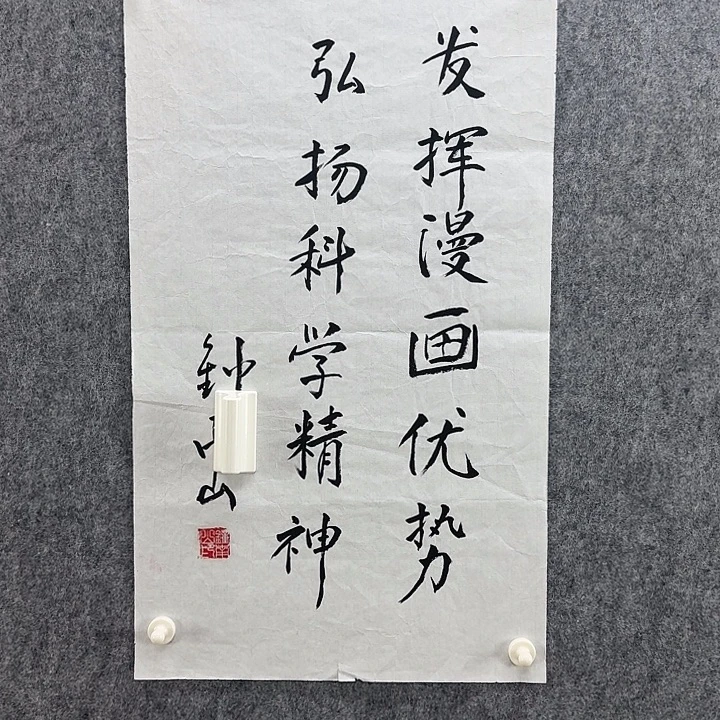 发挥漫画优势
弘扬科学精神
钟
山